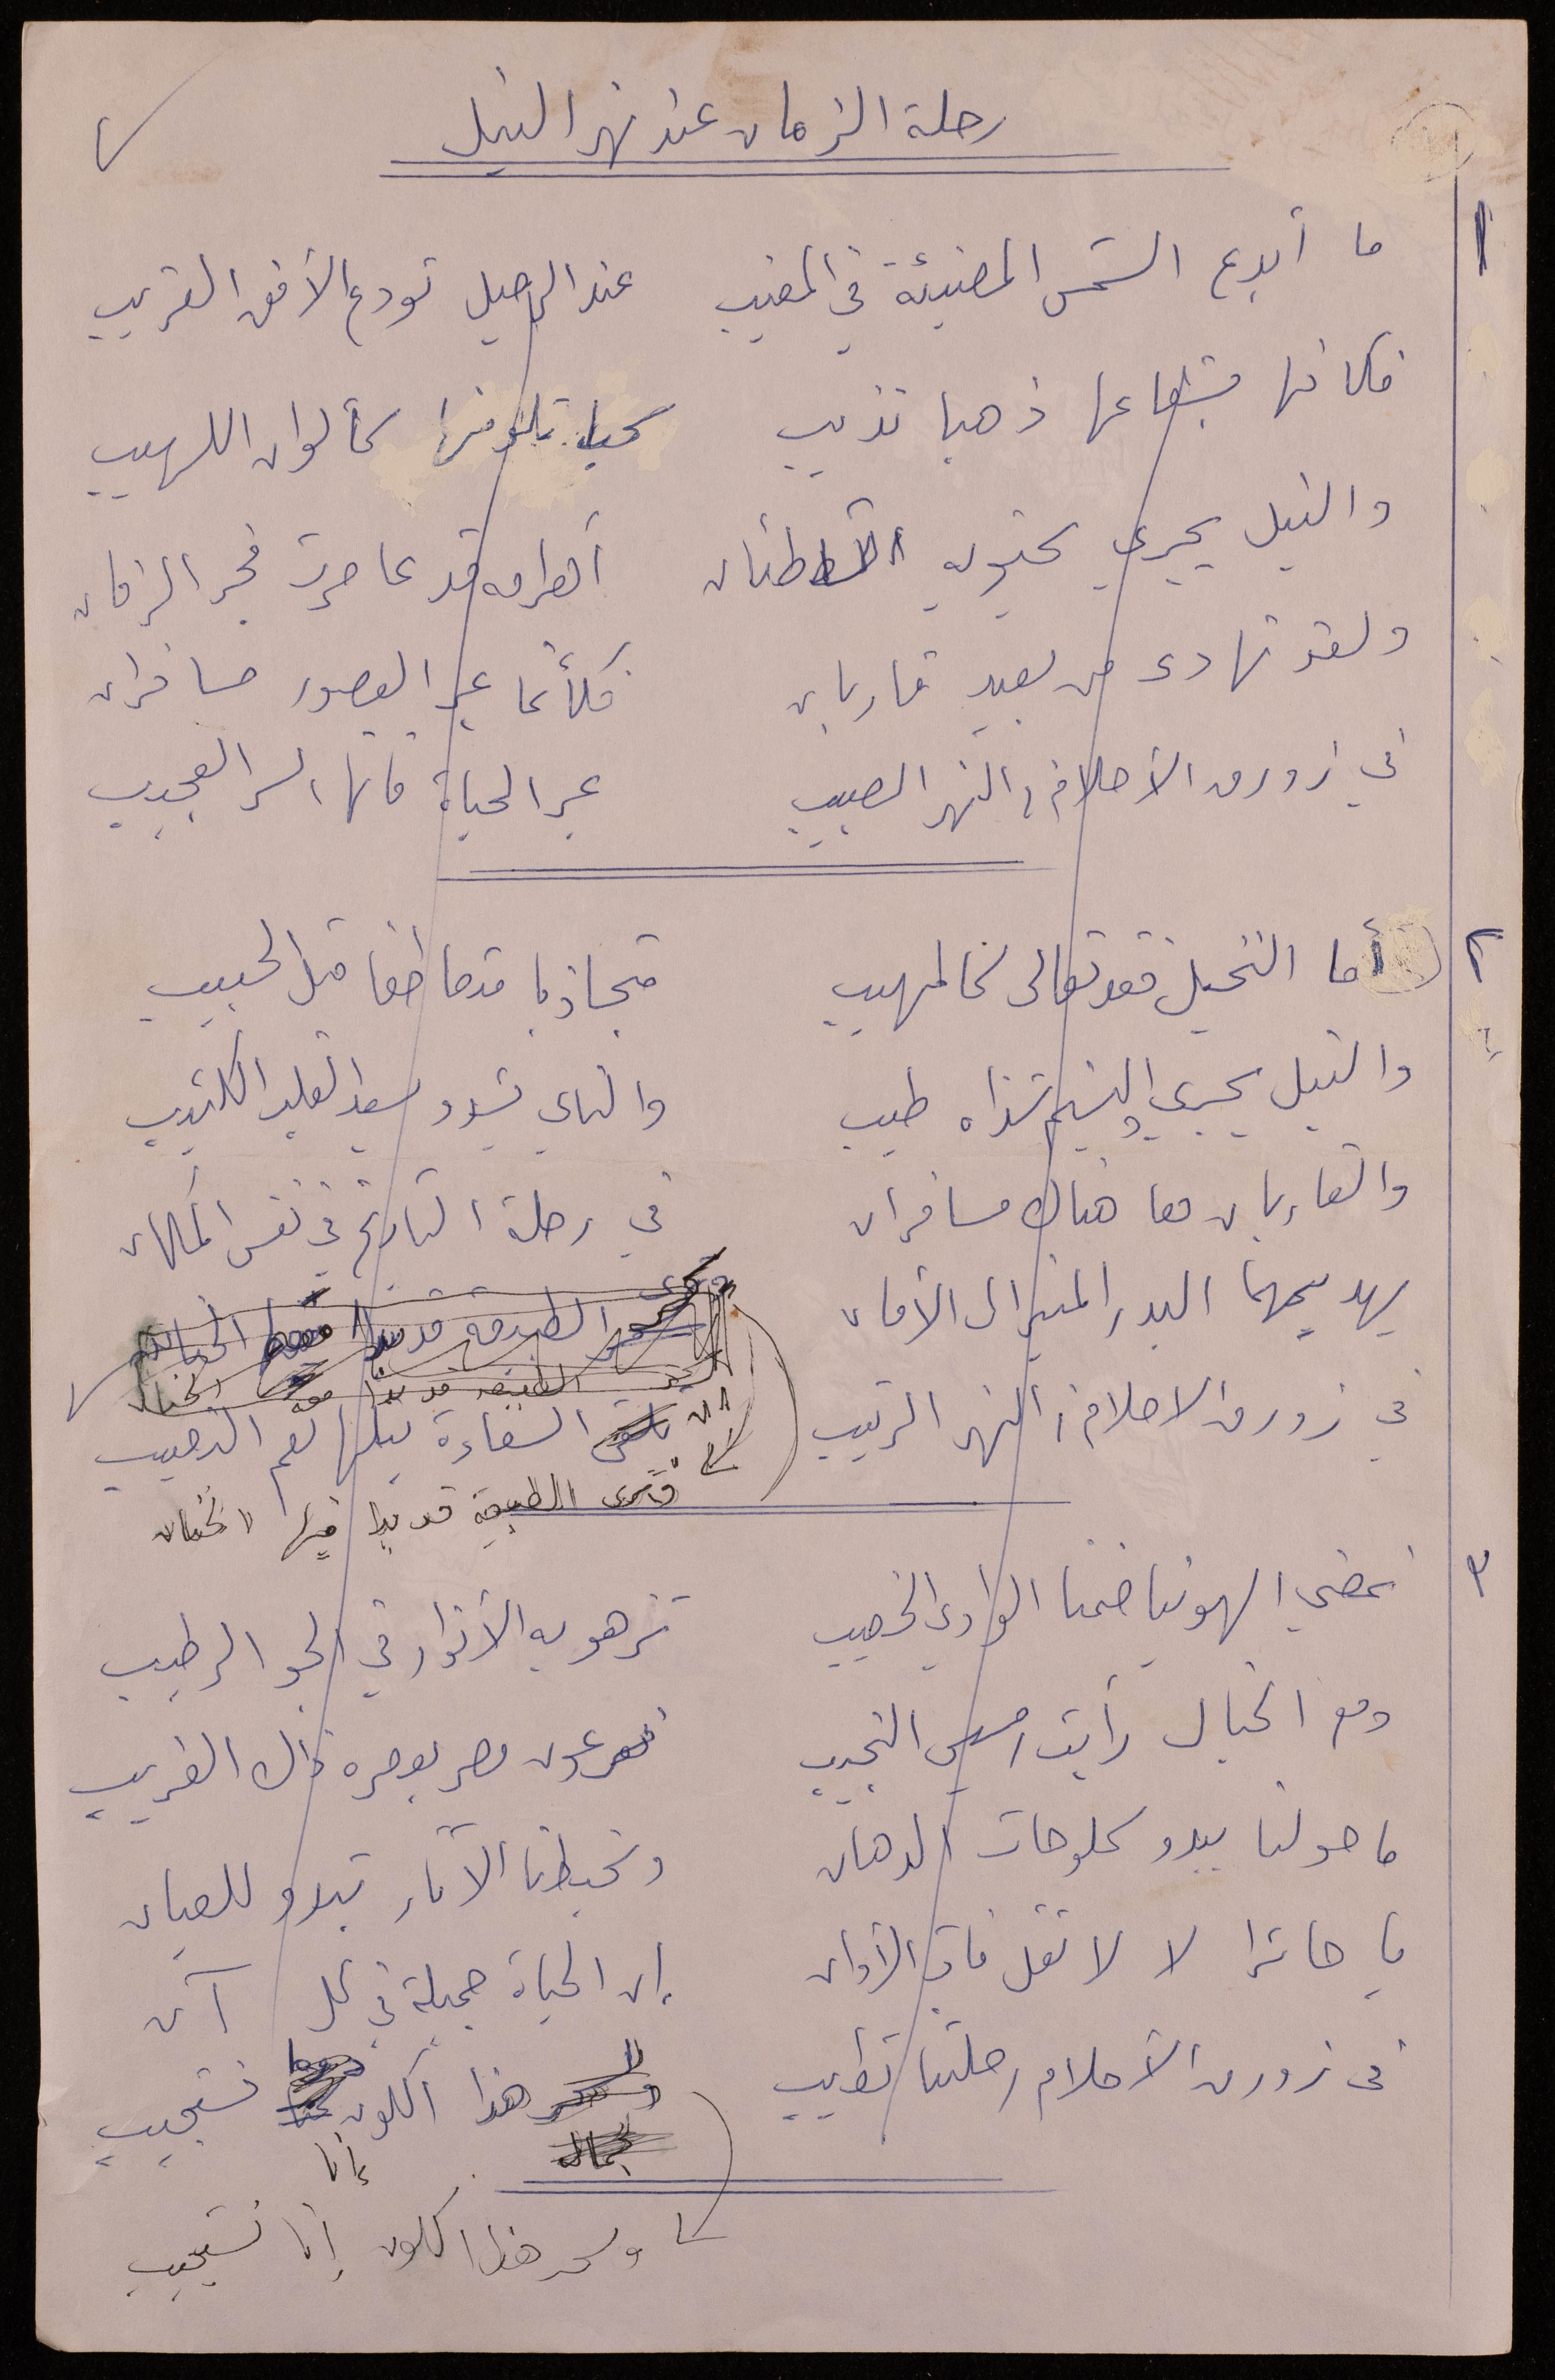 رحلة الزمان عند نهر النيل
١
ما أبدع الشمس المضيئة في المغيب عند الرحيل تودع الأفق القريب
فكانها بشعاعها ذهبا تذيب كحأ لوان اللهيب
والنيل يجري يحتويه الشاطئان أهرامه قد عاصرت فجر الزمان
ولقد تهادى من بعيد قاربان فكأنما عبر العصور مسافران
في زورق الأحلام والنهر الحبيب عبر الحياة فانها السر العجيب
٢
أما النخيل فقد تعالى كالمهيب متجاذبا متعاطفا مثل الحبيب
والنيل يجري والنسيم شذاه طيب والناي يشدو يسعد القلب الكئيب
والقاربان معا هناك مسافران في رحلة التاريخ في نفس المكان
يهديهما البدر المنير الى الأمان
في زورق الاحلام والنهر الرتيب السعادة بيننا الرحيب
فترى الطبيعة قد بدا فيها الحنان
٣
نمضي الهوينا ضمنا الوادي الخصيب تزهو به الأنوار في الجو الرطيب
ومع الخيال رأيت رمسيس النجيب فرعون مصر بعصره ذاك الغريب
ما حولنا يبدو كلوحات الدهان وتحيطنا الآثار تبدو للعيان
يا حائرا لا لا تقل فات الأوان إن الحياة جميلة في كل آن
في زورق الأحلام رحلتنا تطيب هذا الكون نستجيب
إنا
ولسحر هذا الكون إنا نستجيب